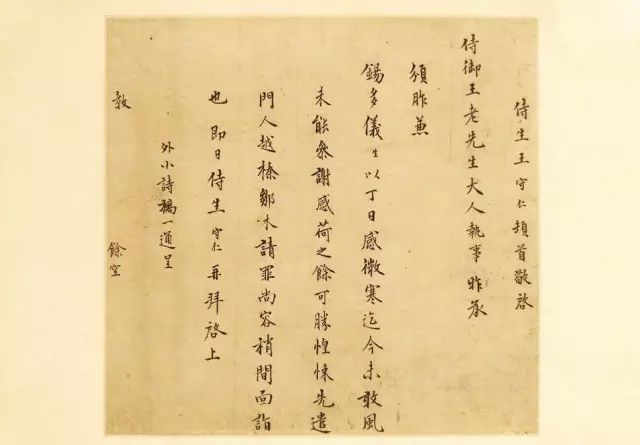 侍生王守仁頓首敬啓
侍御王老先生大人執事昨承
頒胙兼
錫多儀生以丁日感微寒迄今未敢風
未能參謝感荷之餘可勝惶悚先遣
門人越榛鄒木請罪尚容稍間面詣
也即日侍生守仁再拜啓上
外小詩稿一通呈
教 餘空